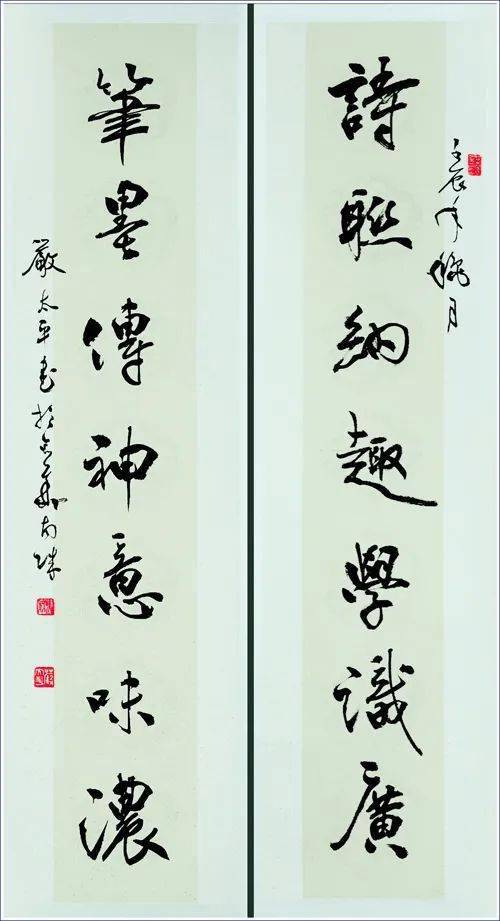 壬辰年 月
詩聯納趣學識廣
筆墨傳神意味濃
嚴太平書於